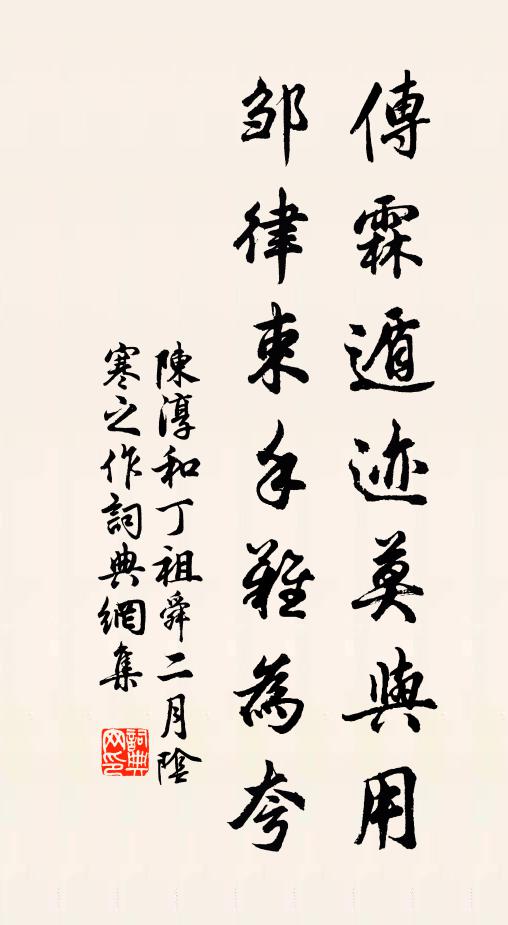 傳霖遁迹莫與用
邹律束手難為夸
陳淳和丁祖舜二月陰
寒之作詞典網集
詞典网印